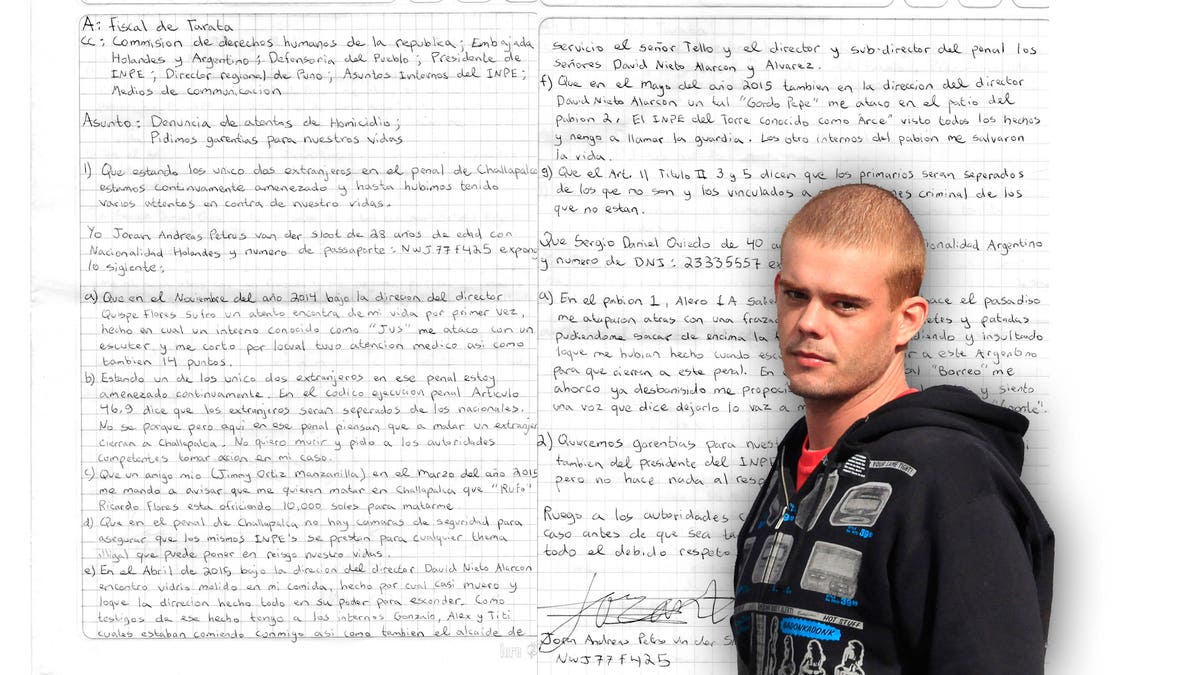 A: Fiscal de Tarata
CC: Commision de derechos humanos de la republica; Embajada
Holandes y Argentino; Defensoria del Pueblo; Presidente de
INPE; Director regional de Puno; Asuntos Internos del INPE;
Medios de communicacion
Asunto: Denuncia de atentos de Homicidio;
Pidimos garentias para nuestros vidas
1) Que estando los unico dos extranjeros en el penal de Challapalca
estamos continuamente amenezado y hasta hubimos tenido
varios attentos en contra de nuestro vidas.
Yo Joran Andreas Petrus van der Sloot de 28 años de edid con
Nacionalidad Holandes y numero de passaporte: NWJ77F425 expong
lo sigiente:
a) Que en el Noviembre del año 2014 bajo la direcion del director
Quispe Flores sufro un atento encontra de mi vida por primer vez,
hecho en cual un interno conocido como "Jus" me ataco con un
escuter y me corto por locual tuvo atencion medico asi como
tambien 14 puntos.
b) Estando un de los unico dos extranjeros en ese penal estoy
amenezado continuamente. En el codico ejecucion penal Articulo
46,9 dice que los extranjeros seran seperados de los nacionales.
No se porque pero aqui en ese penal piensan que a matar un extranjer
cierran a Challapalca. No quiero murir y pido a los autoridades
competentes tomar acion en mi caso.
c) Que un amigo mio (Jimmy Ortiz Manzanilla) en el marzo del año 2015
me mando a avisar que me quieran matar en Challapalca que "Rufo"
Ricardo Flores esta ofriciendo 10,000 soles para matarme.
d) Que en el penal de Challapalca no hay camaras de seguridad para
asegurar que los mismos INPE's se prestan para cualquier thema
illigal que puede poner en reisgo nuestro vidas.
e) En el Abril de 2015, bajo la direcion del director David Nieto Alarcon
encontro vidrio molido en mi comida, hecho por cual casi muero y
loque la direcion hecho todo en su poder para esconder. Como
testigos de ese hecho tengo a los internos Gonzalo, Alex y Titi
cuales estaban comiendo conmigo asi como tambien el alcaide de
servicio el señor Tello y el director y sub-director del penal los
señores David Nieto Alarcon y Alvarez.
f) Que en el mayo del año 2015 tambien en la direcion del director
David Nieto Alarcon un tal "Gordo Pepe" me ataco en el patio del
pabion 2, El INPE del Torre conocido como "Arce" visto todos los hechos
y nengo a llamar la guardia. Los otro internos del pabion me salvaron
la vida.
g) Que el Art. 11 Titulo II 3 y 5 dicen que los primarios seran seperados
de los que no son y los vinculados a es criminal de los
que no estan.
Que Sergio Daniel Oviedo de 40 ionalidad Argentino
y numero de DNI: 23335557
a) En el pabion 1, Alero 1A ace el pasadiso
me ataparon atras con una frazad etes y patadas
pudiendome sacar de encima la diando y insultado
loque me hubian hecho cuando r a este Argentino
para que cierren a este penal. En "Borreo" me
ahorco ya desbanisido me y siento
una voz que dice dejarlo lo vaz a
2) Queremos garentias para
tambien del presidente del INPE
pero no hace nada al
Ruego a los autoridades
caso antes de que sea
todo el debido respeto
Joran Andreas Petrus van der
NWJ77F425
YOUR LAME TSHIRT
HOT STUFF
BADONKADONK